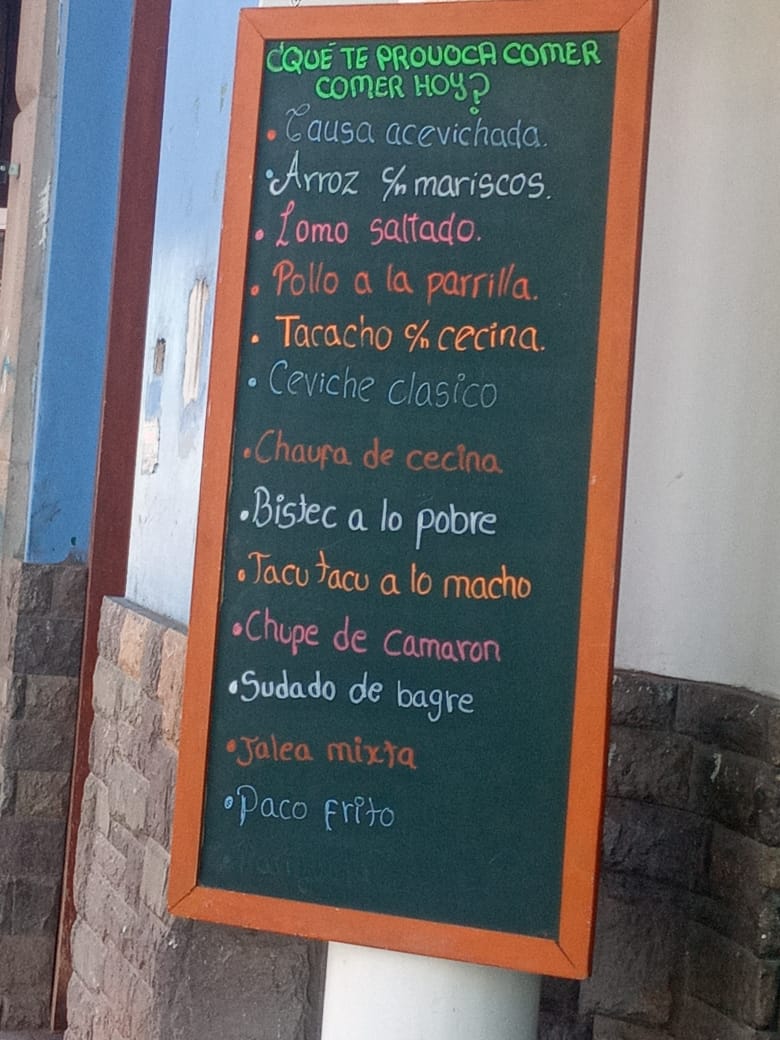 ¿QUÉ TE PROVOCA COMER
COMER HOY?
• Causa acevichada.
• Arroz c/n mariscos.
• Lomo saltado.
• Pollo a la parrilla.
• Tacacho c/n cecina.
• Ceviche clasico
• Chaufa de cecina
• Bistec a lo pobre
• Tacu tacu a lo macho
• Chupe de Camaron
• Sudado de bagre
• Jalea mixta
• Paco frito